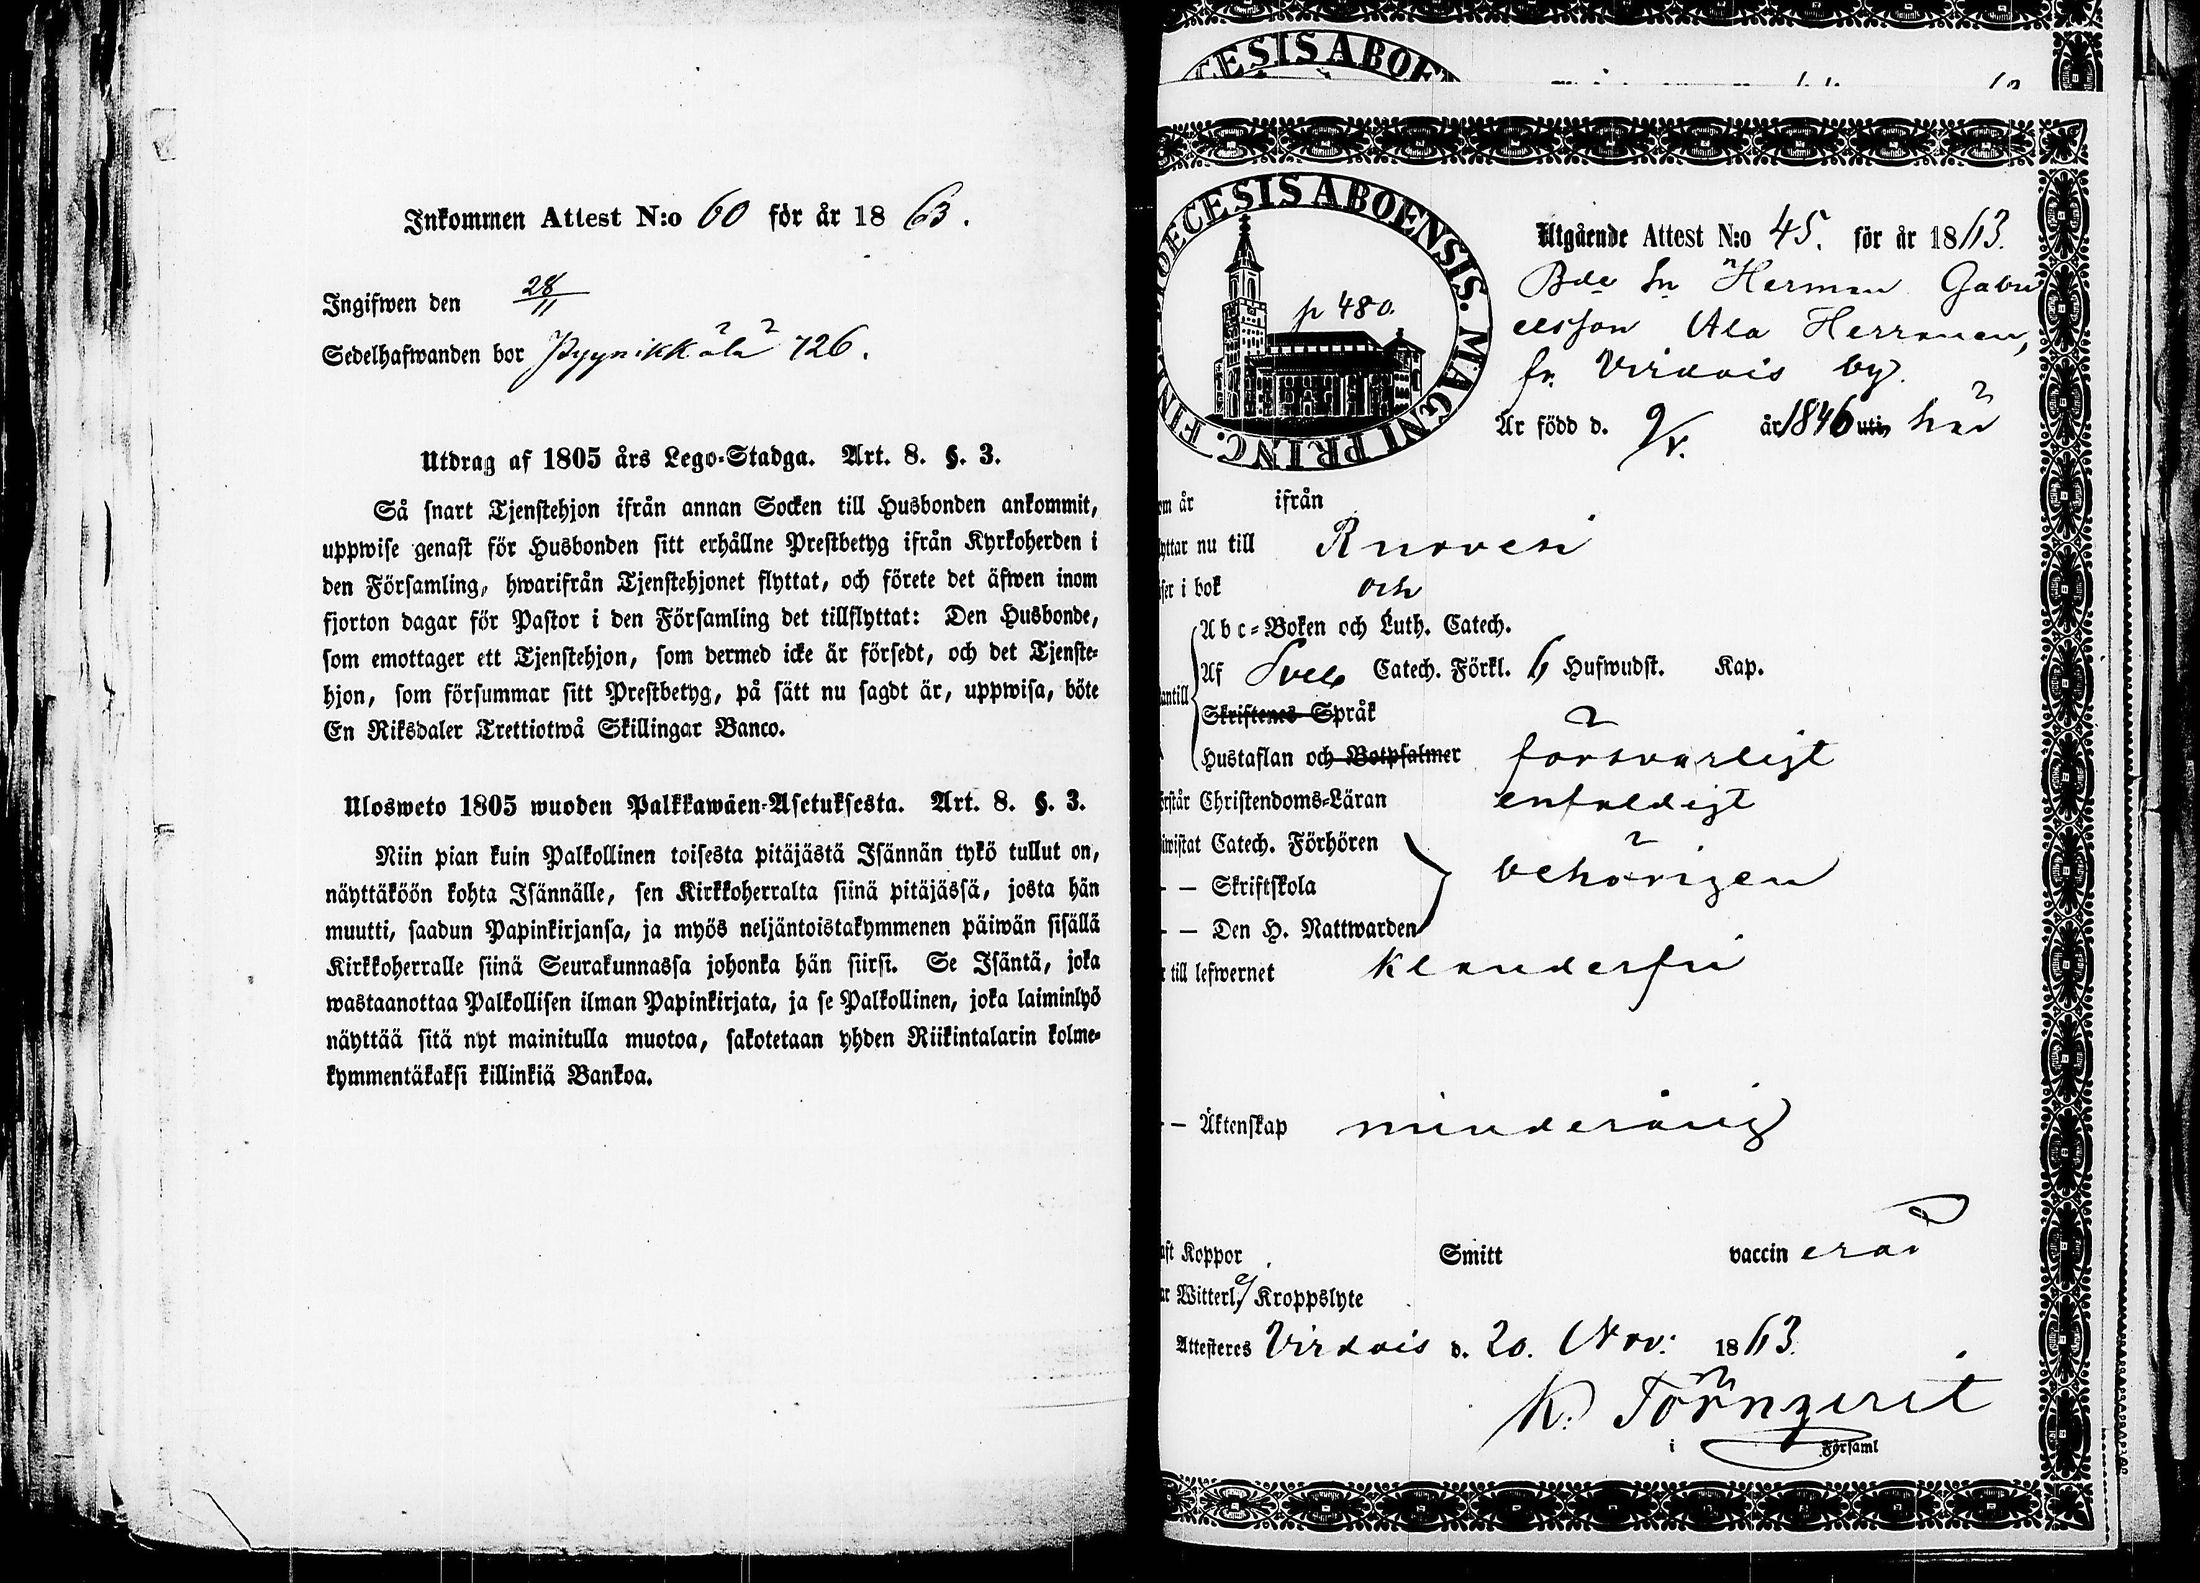 Inkommen Attest N:o 60 för år 18 63.
Ingifwen den 28/11
Sedelhafwanden bor Pyynikkälä 726.
Utdrag af 1805 års Lego-Stadga. Art. 8. §. 3.
Så snart Tjenstehjon ifrån annan Socken till Husbonden ankommit,
uppwise genast för Husbonden sitt erhållne Prestbetyg ifrån Kyrkoherden i
den Församling, hwarifrån Tjenstehjonet flyttat, och förete det äfwen inom
fjorton dagar för Pastor i den Församling det tillflyttat: Den Husbonde,
som emottager ett Tjenstehjon, som dermed icke är försedt, och det Tjenste-
hjon, som försummar sitt Prestbetyg, på sätt nu sagdt är, uppwisa, böte
En Riksdaler Trettiotwå Skillingar Banco.
Ulosweto 1805 wuoden Palkkawäen-Asetuksesta. Art. 8. §. 3.
Niin pian kuin Palkollinen toisesta pitäjästä Isännän tykö tullut on,
näyttäköön kohta Isännälle, sen Kirkkoherralta siinä pitäjässä, josta hän
muutti, saadun Papinkirjansa, ja myös neljäntoistakymmenen päiwän sisällä
Kirkkoherralle siinä Seurakunnassa johonka hän siirsi. Se Isäntä, joka
wastaanottaa Palkollisen ilman Papinkirjata, ja se Palkollinen, joka laiminlyö
näyttää sitä nyt mainitulla muotoa, sakotetaan yhden Riikintalarin kolme-
kymmentäkaksi killinkiä Bankoa.
ESIS ABOE
DIOECESIS ABOENSIS. MAGNI PRINC. FIN
p 480.
Utgående Attest N:o 45. för år 1863.
Bde Sn Herman Gabri
elsson Ala Herranen,
fr. Virdois by.
Är född d. 9/V. år 1846 uti här
om år ifrån
yttar nu till Ruovesi
ser i bok och
Abc-Boken och Luth. Catech.
antill
Af Sveb Catech. Förkl. 6 Hufwudst. Kap.
Skriftenes Språk
Hustaflan och Botpsalmer försvarligt
örstår Christendoms-Läran enfaldigt
iwistat Catech. Förhören
— — Skriftskola behörigen
— — Den H. Nattwarden
r till lefwernet klanderfri
— — Äktenskap minderårig
aft Koppor Smitt vaccin erad
ar Witterl. Kroppslyte
Attesteres Virdois d. 20. Nov. 1863.
K. Törnqvist
i Församl